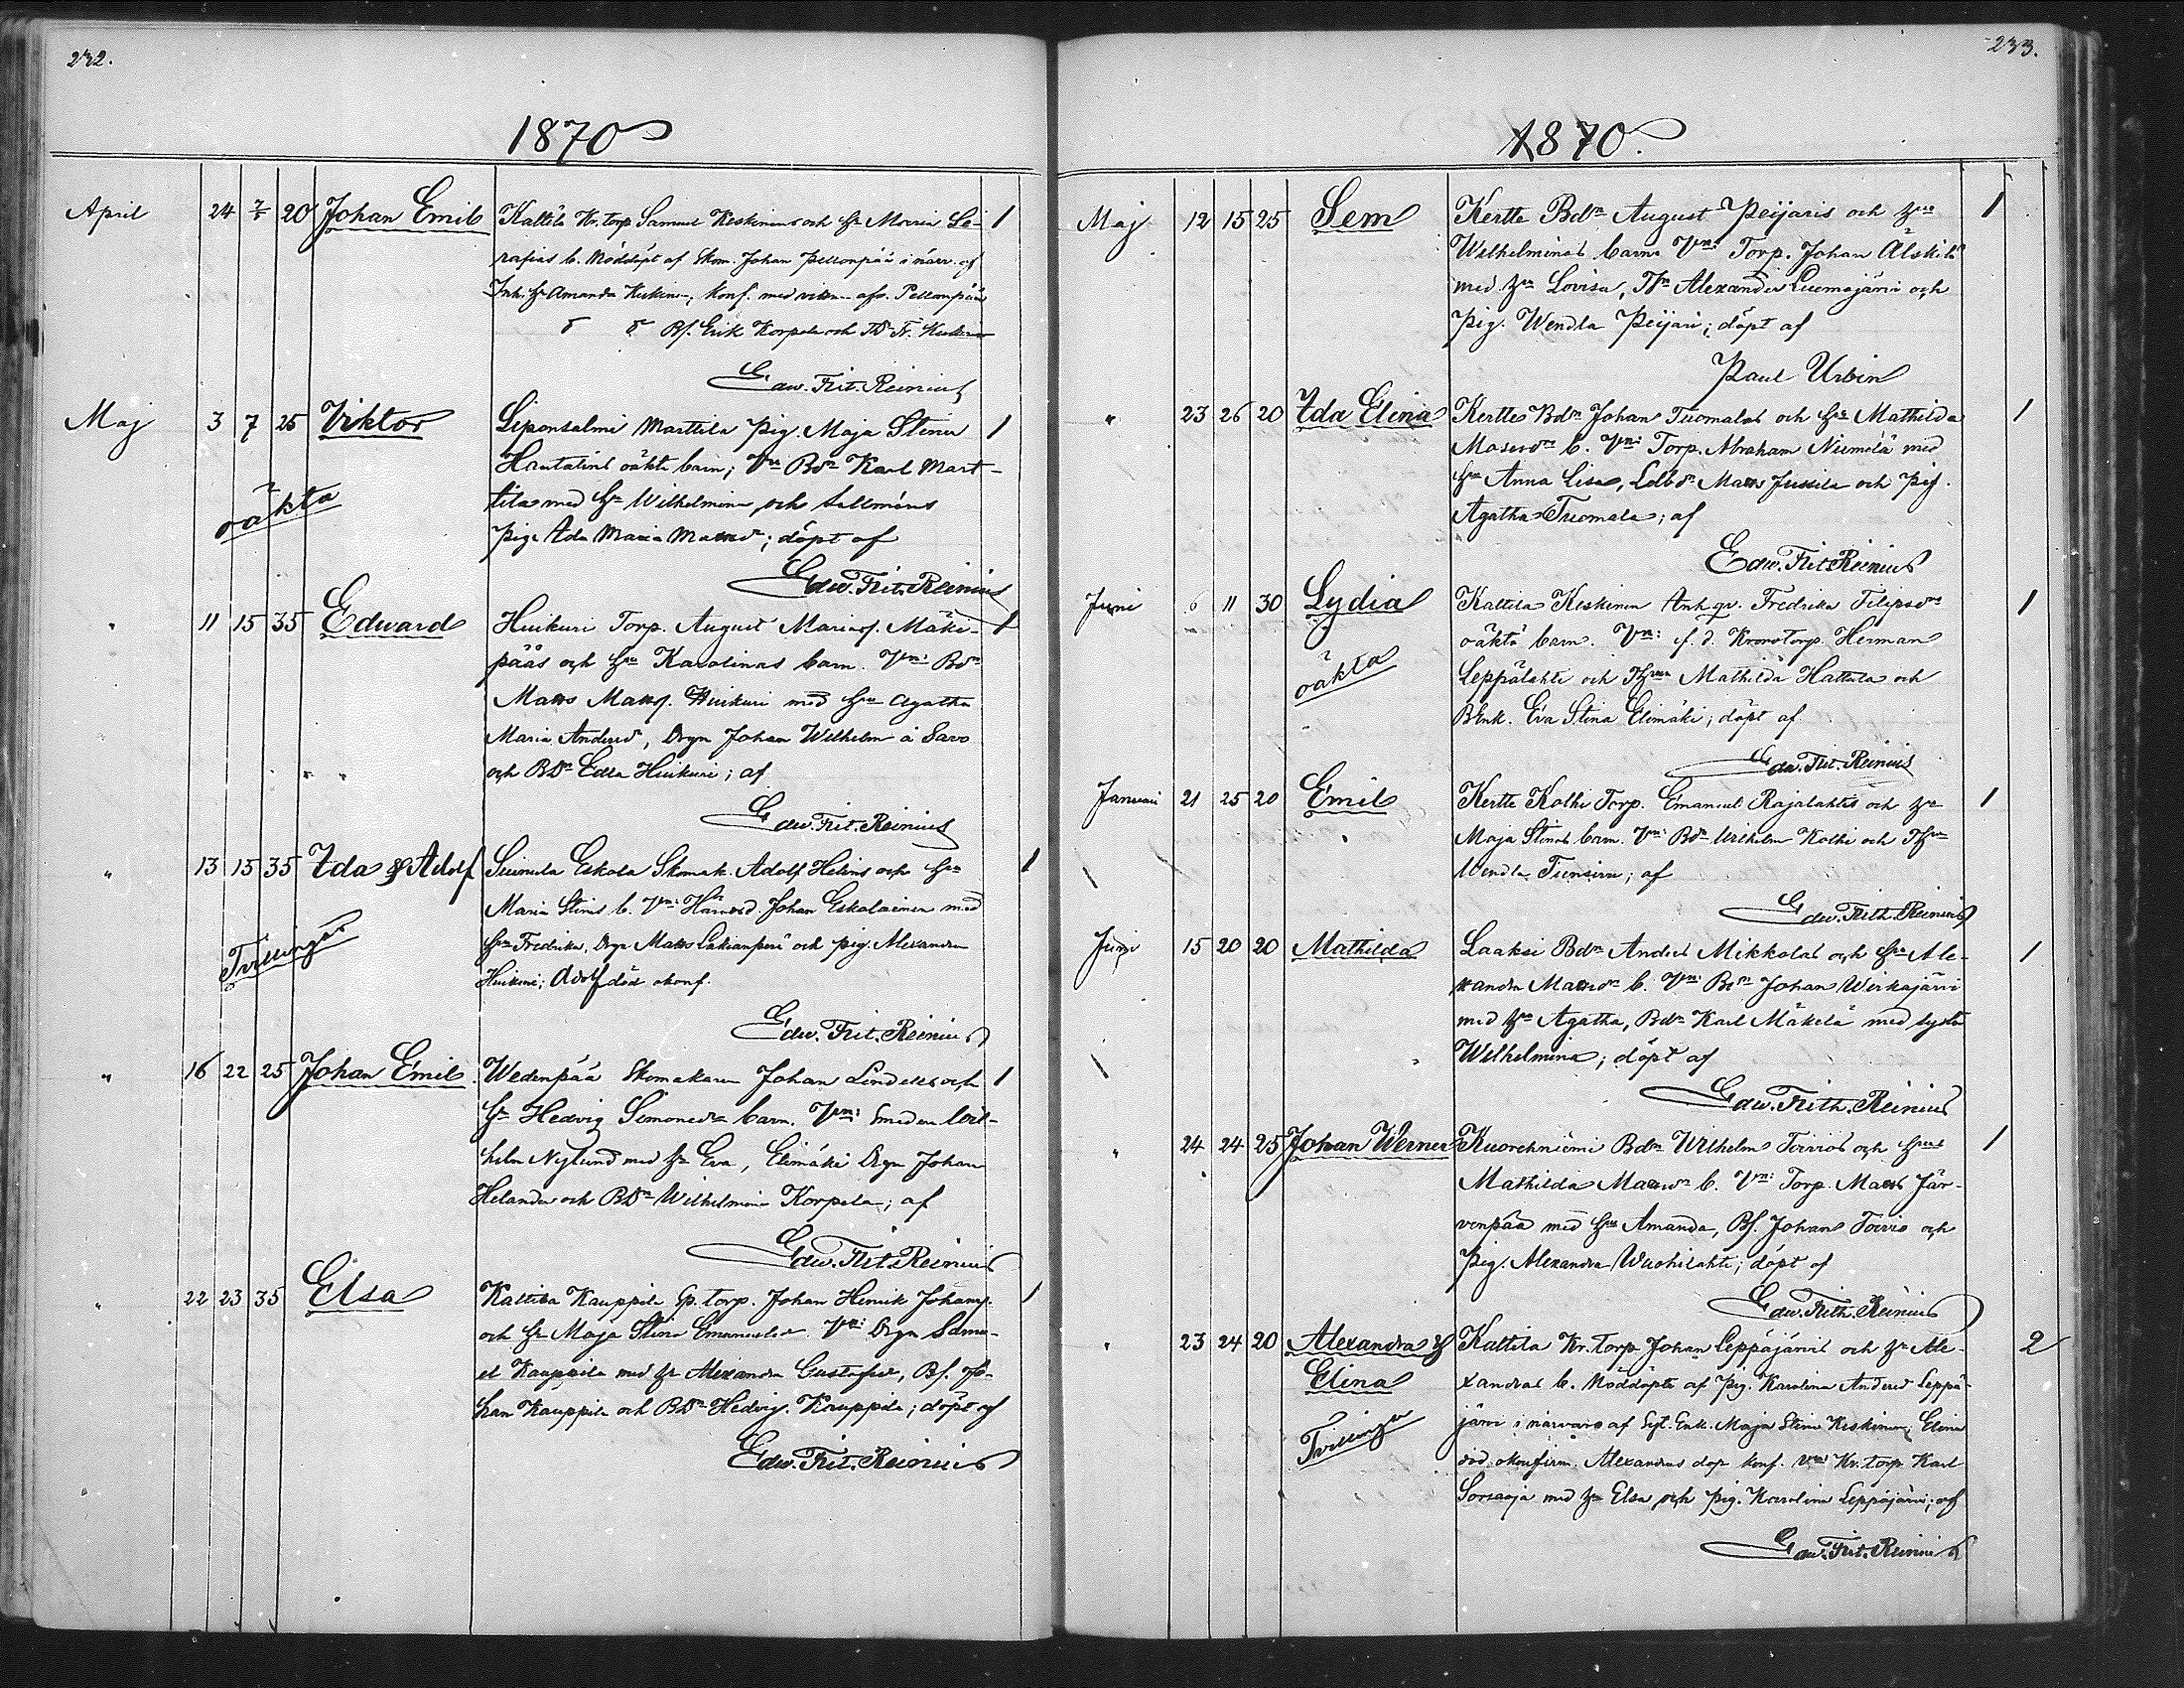 232.
1870
April 24 7/5 20 Johan Emil Kattila Kr. torp Samuel Keskinens och h. Maria Se- 1
rafias b. Nöddöpt af Skom. Johan Pellonpää i närv. af
Inh. h. Amanda Keskinen, konf. med vittnen afs. Pellonpää
Bs. Erik Korpela och
Edw. Frit. Reinius
Maj 3 7 25 Viktor Siponsalmi Marttila Pig. Maja Stina 1
Hautalins oäkta barn; Vn Bdn Karl Mart-
oäkta
tila med hu Wilhelmina och Sallméns
pig. Ida Maria Mattsdr; döpt af
Edw. Frit. Reinius
" 11 15 35 Edward Huikuri Torp. August Mariasf. Mäki- 1
pääs och hu Karolinas barn. Vn: Bdn
Matts Mattsf. Huikuri med hu Agatha
Maria Andersdr, Drgn Johan Wilhelm å Savo
och BDr Edla Huikuri; af
Edw. Frit. Reinius
" 13 15 35 Ida & Adolf Suinula Eskola Skomak. Adolf Helins och hu 1
Maria Stinas b. Vn: Johan Eskolainen med
Tvillingar
hu Fredrika, Drgn Matts Lakianperä och pig. Alexandra
Huikuri; Adolf död okonf.
Edw. Frit. Reinius
" 16 22 25 Johan Emil Wedenpää Skomakaren Johan Lindells och 1
hu Hedvig Simonsdr barn. Vn: Smeden Wil-
helm Nylund med hu Eva, Elimäki Drgn Johan
Helander och BDr Wilhelmina Korpela; af
Edw. Frit. Reinius
" 22 23 35 Elsa Kattila Kauppila Gp. torp. Johan Henrik Johansf. 1
och hu Maja Stina Emanuelsdr. Vn: Drgn Samu-
el Kauppila med hu Alexandra Gustafsdr, Bs. Jo-
han Kauppila och BDr Hedvig Kauppila; döpt af
Edw. Frit. Reinius
233.
1870.
Maj 12 15 25 Sem Kertte Bdn August Peijaris och hus 1
Wilhelminas barn. Vn: Torp. Johan Alskilä
med hu Lovisa, Alexander Luemajärvi och
Pig. Wendla Peijari; döpt af
Paul Urbin
" 23 26 20 Ida Elina Kertte Bdn Johan Tuomalas och hu Mathilda 1
Mattsdrs b. Vn: Torp. Abraham Niemelä med
hu Anna Lisa, Matts Jussila och pig.
Agatha Tuomala; af
Edw. Frit Reinius
Juni 6 11 30 Lydia Kattila Keskinen Inh. qv. Fredrika Filipsdrs 1
oäkta barn. Vn: f. d. Kronotorp. Herman
oäkta
Leppälahti och Thu Mathilda Hattula och
BEnk. Eva Stina Elimäki; döpt af
Edw. Frit. Reinius
Januari 21 25 20 Emil Kertte Kolhi Torp. Emanuel Rajalahtis och hu 1
Maja Stinas barn. Vn: Bdn Wilhelm Kolhi och Thu
Wendla; af
Edw. Frith. Reinius
Juni 15 20 20 Mathilda Laaksi Bdn Anders Mikkolas och hu Ale- 1
xandra Mattsdrs b. Vn: Bdn Johan Wirkajärvi
med hu Agatha, Bdn Karl Mäkelä med syster
Wilhelmina; döpt af
Edw. Frith. Reinius
" 24 24 25 Johan Werner Kuorehniemi Bdn Wilhelm Toivios och hus 1
Mathilda Mattsdrs b. Vn: Torp. Matts Jär-
venpää med hu Amanda, Bs. Johan Toivio och
Pig. Alexandra Wuohilahti; döpt af
Edw. Frith. Reinius
" 23 24 20 Alexandra & Kattila Kr. torp Johan Leppäjärvis och hu Ale- 2
Elina xandras b. Nöddöpta af Pig. Karolina Andersdr Leppä-
Tvillingar järvi i närvaro af Enk. Maja Stina Keskinen; Elina
död okonfirm. Alexandras dop konf. Vn: Kr. torp Karl
Sorsaoja med hu Elsa och pig. Karolina Leppäjärvi; af
Edw. Frit. Reinius